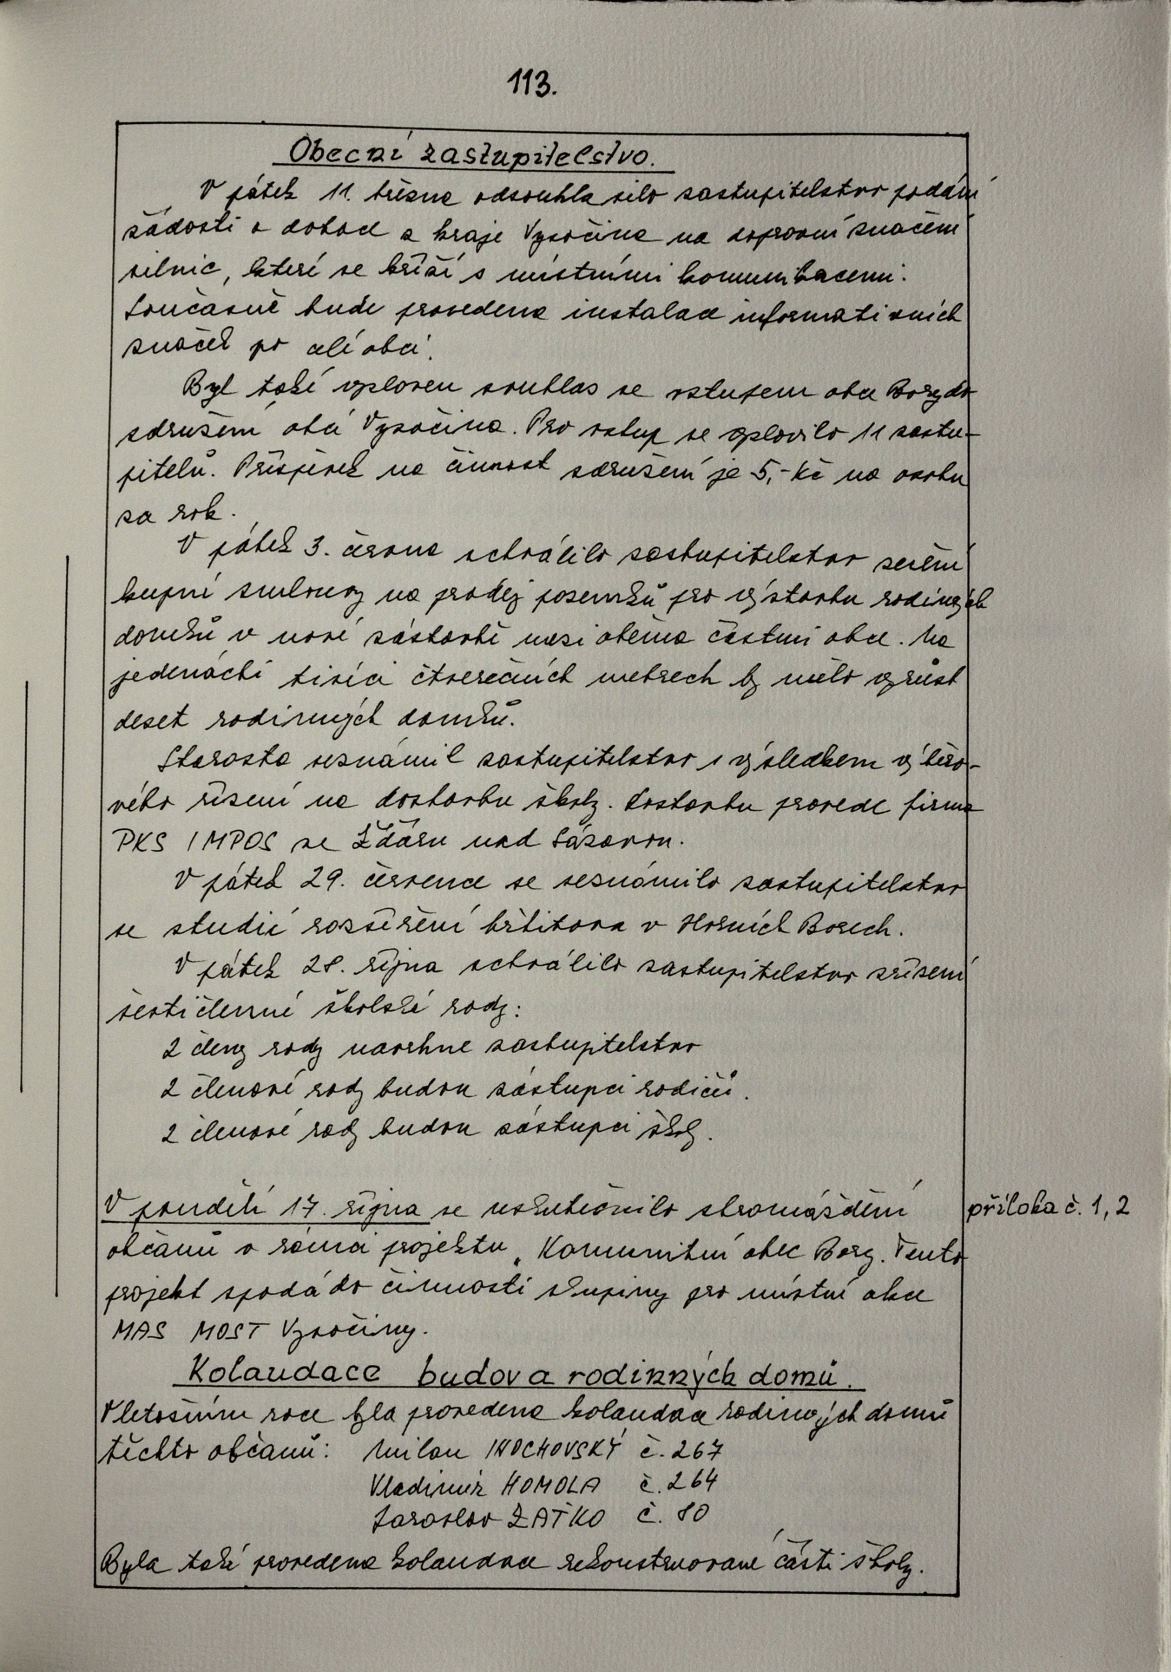 113.
Obecní zastupitelstvo.
V pátek 11. března odsouhlasilo zastupitelstvo podání
žádosti o dotace z kraje Vysočina na dopravní značení
silnic, které se kříží s místními komunikacemi.
Současně bude provedena instalace informativních
značek po celé obci.
Byl také vysloven souhlas se vstupem obce Bory do
sdružení obcí Vysočina. Pro vstup se vyslovilo 11 zastu-
pitelů. Příspěvek na činnost sdružení je 5,- Kč na osobu
za rok.
V pátek 3. června schválilo zastupitelstvo znění
kupní smlouvy na prodej pozemků pro výstavbu rodinných
domků v nové zástavbě mezi oběma částmi obce. Na
jedenácti tisíci čtverečních metrech by mělo vyrůst
deset rodinných domků.
Starosta seznámil zastupitelstvo s výsledkem výběro-
vého řízení na dostavbu školy. Dostavbu provede firma
PKS IMPOS ze Žďáru nad Sázavou.
V pátek 29. července se seznámilo zastupitelstvo
se studií rozšíření hřbitova v Horních Borech.
V pátek 28. října schválilo zastupitelstvo zřízení
šestičlenné školské rady:
2 členy rady navrhne zastupitelstvo
2 členové rady budou zástupci rodičů.
2 členové rady budou zástupci školy.
V pondělí 17. října se uskutečnilo shromáždění
příloha č. 1, 2
občanů v rámci projektu „Komunitní obec Bory. Tento
projekt spadá do činnosti skupiny pro místní akce
MAS MOST Vysočiny.
Kolaudace budov a rodinných domů.
V letošním roce byla provedena kolaudace rodinných domů
těchto občanů: Milan INOCHOVSKÝ č. 267
Vladimír HOMOLA č. 264
Jaroslav ZAŤKO č. 80
Byla také provedena kolaudace rekonstruované části školy.